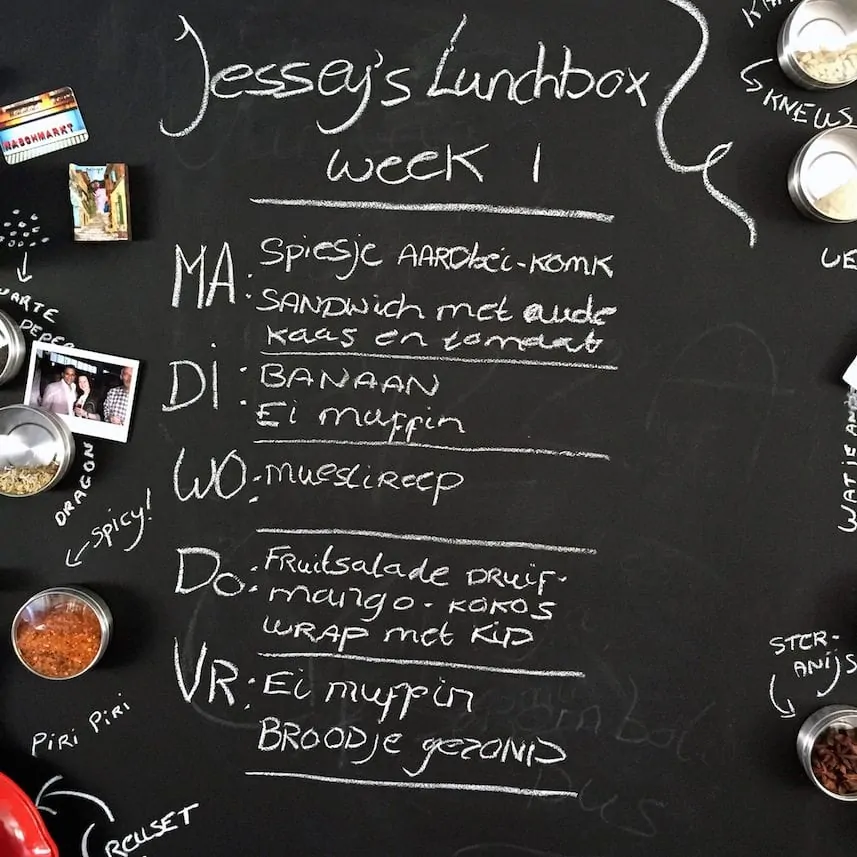 Jessey's Lunchbox
week 1
MA: Spiesje AARDbei-KOMK
SANDWich met oude
kaas en tomaat
Di: BANAAN
Ei muffin
WO: mueslireep
Do: FRuitsalade DRuif-
mango-KOKOS
WRAP met KiP
VR: Ei muffin
BROODje gezOND
NASCHMARKT
PEPER
DRAGON
SPICY!
PiRi PiRi
KNEUS
STER-
ANijS
WAT JE